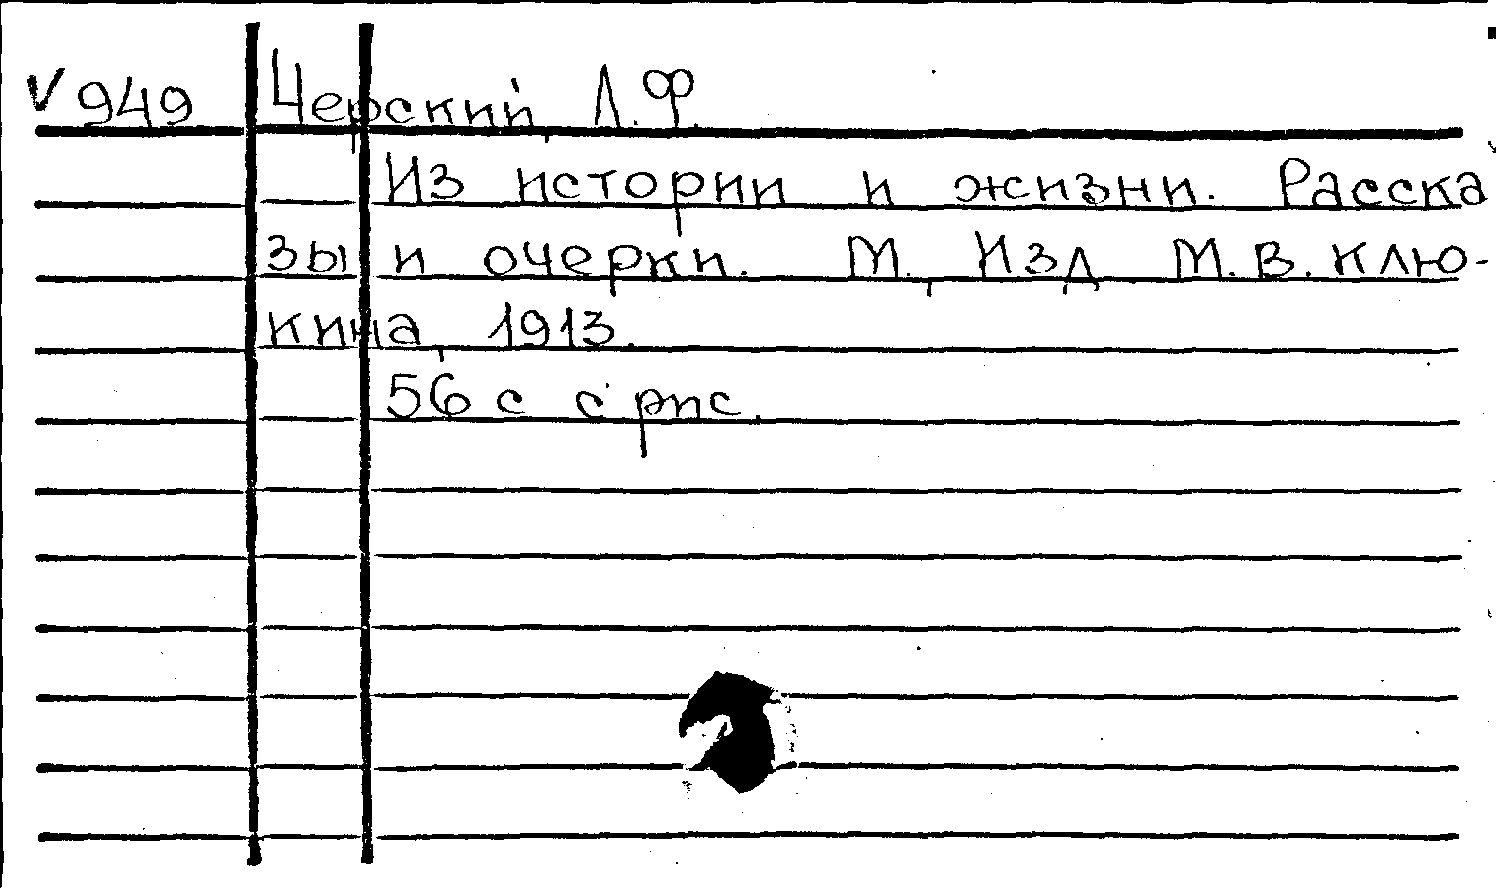 V 949 Черский, Л.Ф.
Из истории и жизни. Расска
зы и очерки. М., Изд. М.В. Клю-
кина, 1913.
56 с с рис.